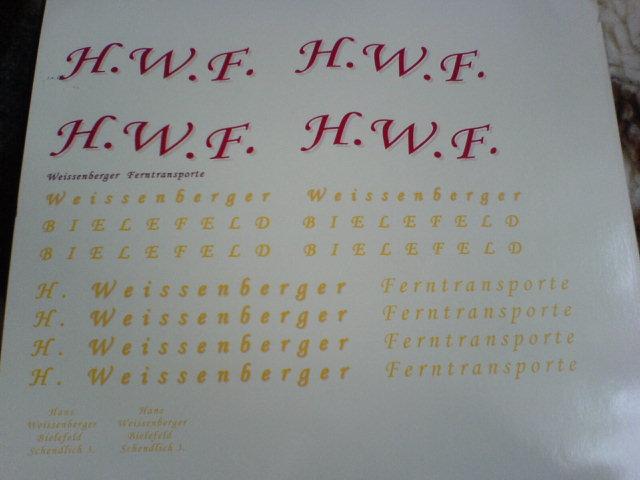 H.W.F. H.W.F.
H.W.F. H.W.F.
Weissenberger Ferntransporte
Weissenberger Weissenberger
BIELEFELD BIELEFELD
BIELEFELD BIELEFELD
H. Weissenberger Ferntransporte
H. Weissenberger Ferntransporte
H. Weissenberger Ferntransporte
H. Weissenberger Ferntransporte
Hans Hans
Weissenberger Weissenberger
Bielefeld Bielefeld
Schendlich 3. Schendlich 3.